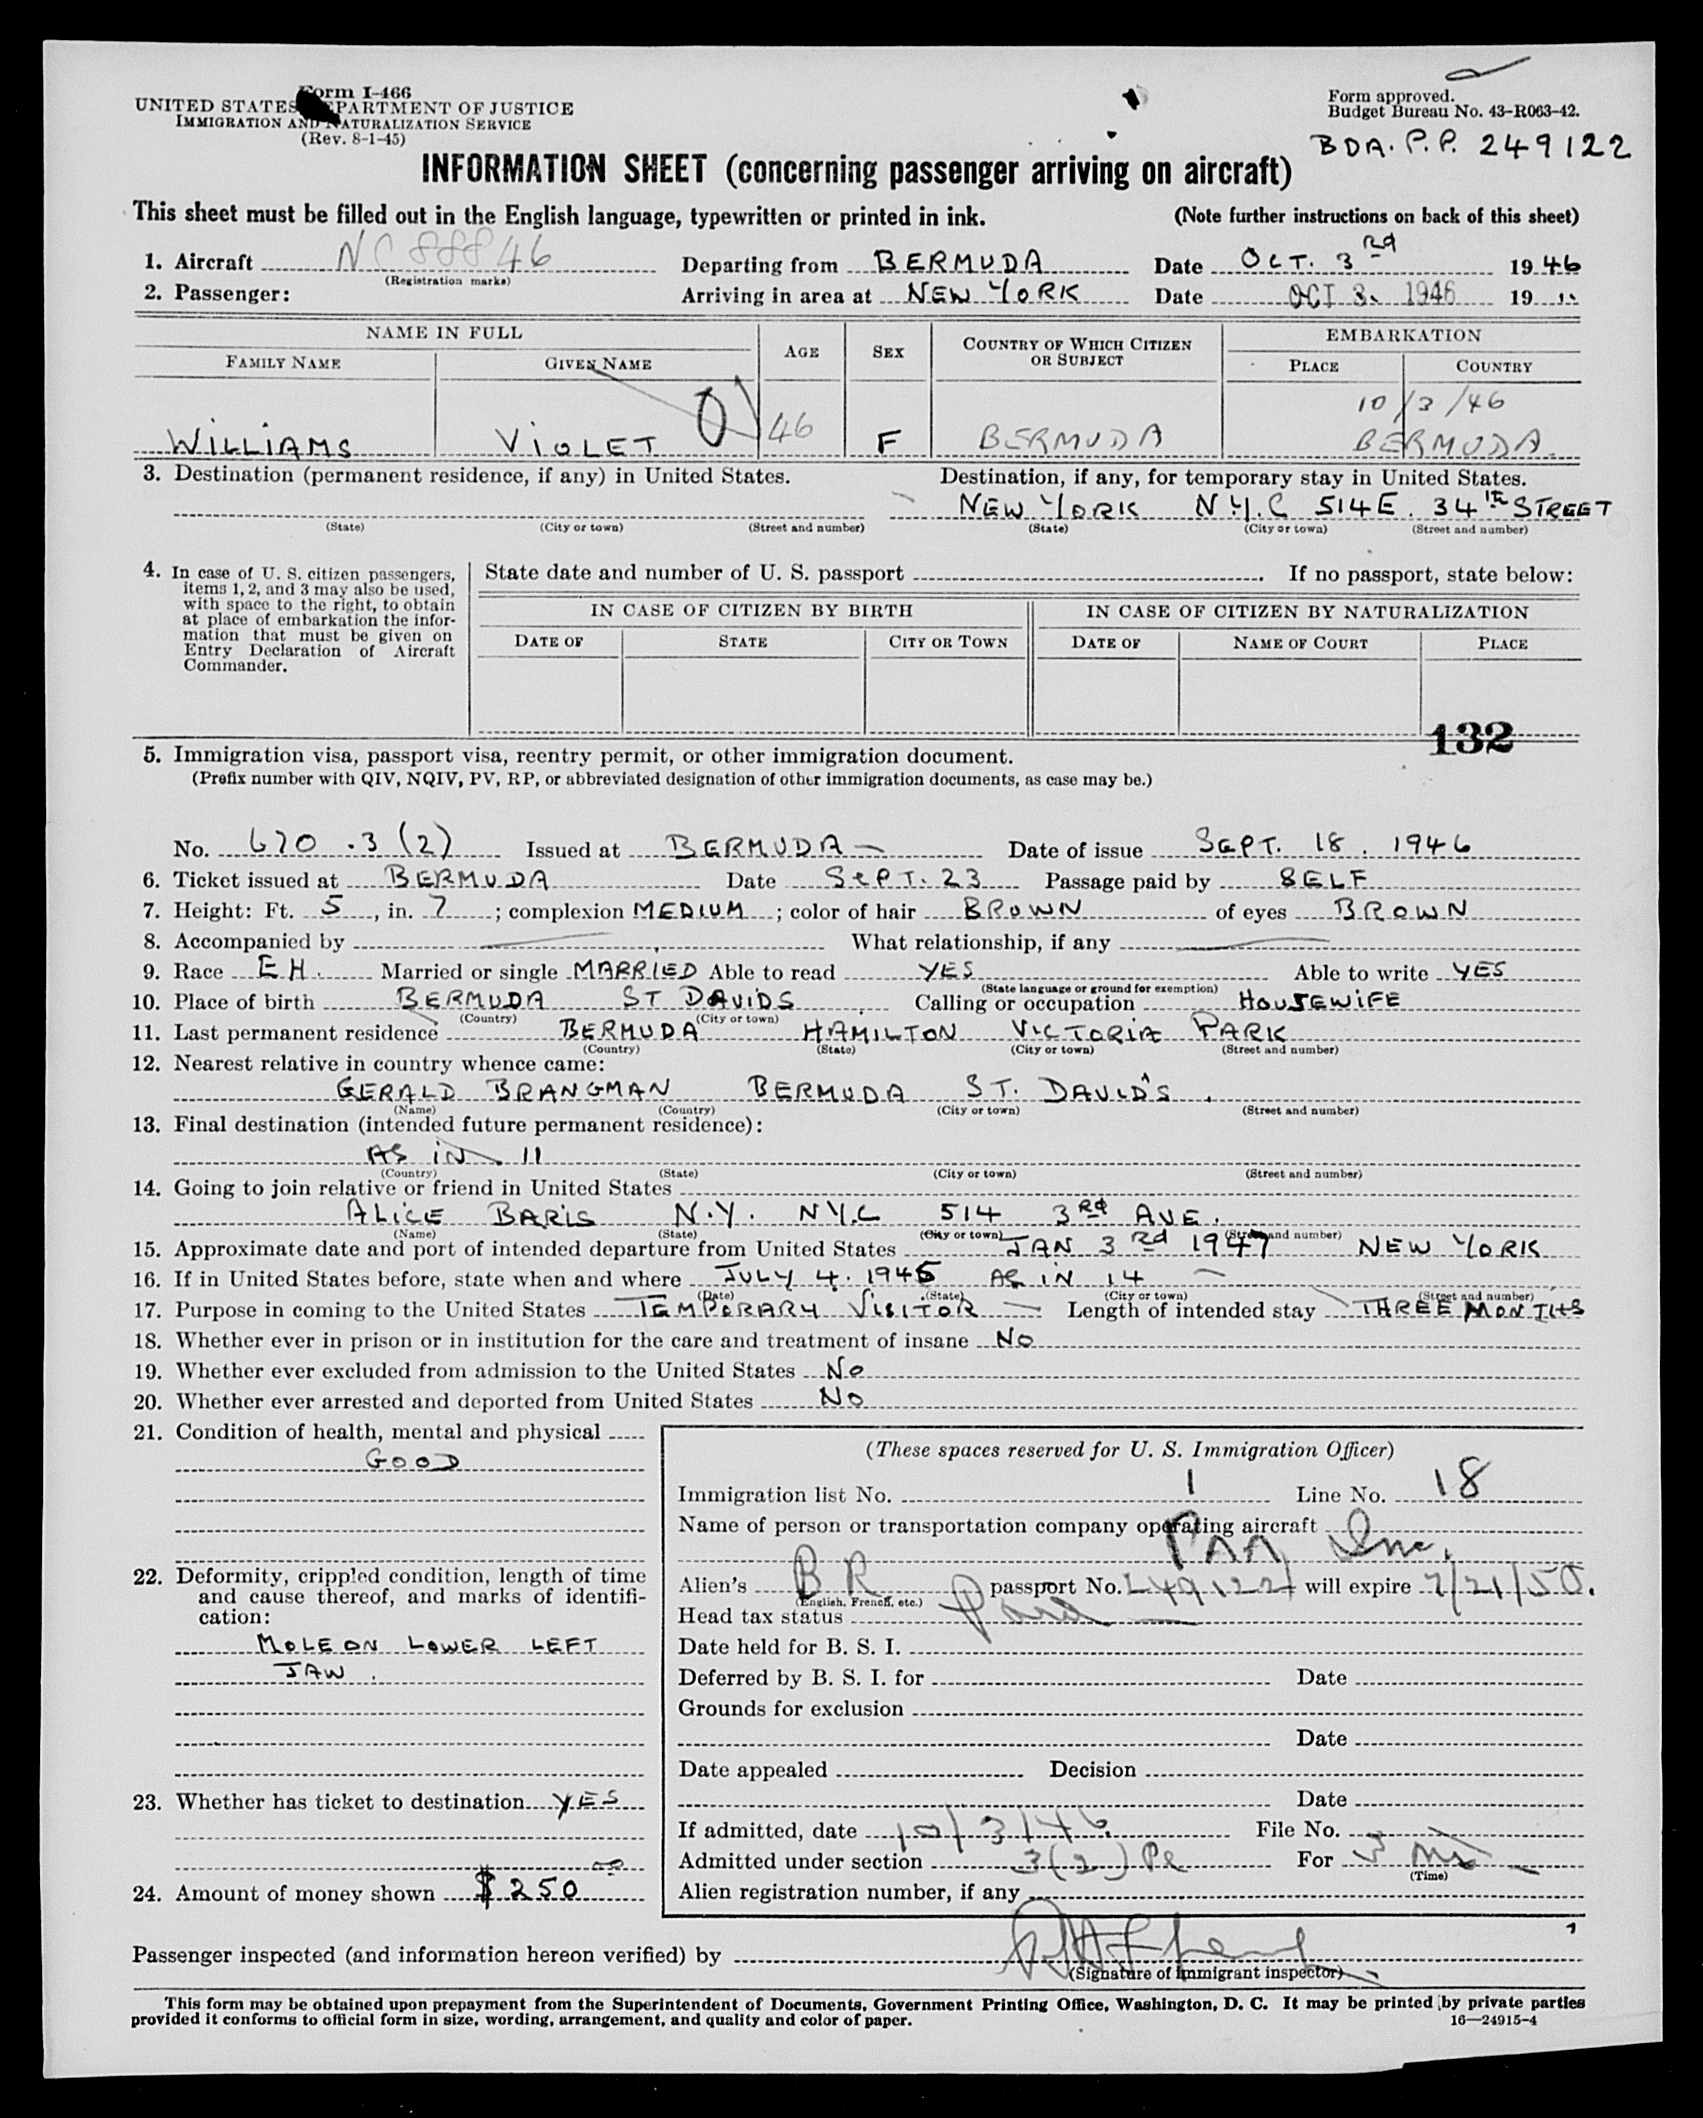 Form I-466
UNITED STATES DEPARTMENT OF JUSTICE
IMMIGRATION AND NATURALIZATION SERVICE
(Rev. 8-1-45)
Form approved.
Budget Bureau No. 43-R063-42.
BDA. P.P. 249122
INFORMATION SHEET (concerning passenger arriving on aircraft)
This sheet must be filled out in the English language, typewritten or printed in ink. (Note further instructions on back of this sheet)
1. Aircraft NC 88846 Departing from BERMUDA Date OCT. 3rd 1946
(Registration marks)
2. Passenger: Arriving in area at NEW YORK Date OCT 3. 1946 19
NAME IN FULL AGE SEX COUNTRY OF WHICH CITIZEN OR SUBJECT EMBARKATION
FAMILY NAME GIVEN NAME PLACE COUNTRY
10/3/46
WILLIAMS VIOLET 46 F BERMUDA BERMUDA
3. Destination (permanent residence, if any) in United States. Destination, if any, for temporary stay in United States.
NEW YORK N.Y.C 514 E. 34th STREET
(State) (City or town) (Street and number) (State) (City or town) (Street and number)
4. In case of U. S. citizen passengers, items 1, 2, and 3 may also be used, with space to the right, to obtain at place of embarkation the information that must be given on Entry Declaration of Aircraft Commander.
State date and number of U. S. passport . If no passport, state below:
IN CASE OF CITIZEN BY BIRTH IN CASE OF CITIZEN BY NATURALIZATION
DATE OF STATE CITY OR TOWN DATE OF NAME OF COURT PLACE
132
5. Immigration visa, passport visa, reentry permit, or other immigration document.
(Prefix number with QIV, NQIV, PV, RP, or abbreviated designation of other immigration documents, as case may be.)
No. 670 .3 (2) Issued at BERMUDA Date of issue SEPT. 18. 1946
6. Ticket issued at BERMUDA Date SEPT. 23 Passage paid by SELF
7. Height: Ft. 5, in. 7; complexion MEDIUM; color of hair BROWN of eyes BROWN
8. Accompanied by What relationship, if any
9. Race EH. Married or single MARRIED Able to read YES Able to write YES
(State language or ground for exemption)
10. Place of birth BERMUDA ST DAVIDS Calling or occupation HOUSEWIFE
(Country) (City or town)
11. Last permanent residence BERMUDA HAMILTON VICTORIA PARK
(Country) (State) (City or town) (Street and number)
12. Nearest relative in country whence came:
GERALD BRANGMAN BERMUDA ST. DAVID'S
(Name) (Country) (City or town) (Street and number)
13. Final destination (intended future permanent residence):
AS IN 11
(Country) (State) (City or town) (Street and number)
14. Going to join relative or friend in United States
ALICE BARIS N.Y. NY.C 514 3rd AVE.
(Name) (State) (City or town) (Street and number)
15. Approximate date and port of intended departure from United States JAN 3rd 1947 NEW YORK
16. If in United States before, state when and where JULY 4. 1945 AS IN 14
(Date) (State) (City or town) (Street and number)
17. Purpose in coming to the United States TEMPORARY VISITOR Length of intended stay THREE MONTHS
18. Whether ever in prison or in institution for the care and treatment of insane No
19. Whether ever excluded from admission to the United States No
20. Whether ever arrested and deported from United States No
21. Condition of health, mental and physical
GOOD
22. Deformity, crippled condition, length of time and cause thereof, and marks of identification:
MOLE ON LOWER LEFT
JAW.
23. Whether has ticket to destination YES
24. Amount of money shown $250 00
(These spaces reserved for U. S. Immigration Officer)
Immigration list No. 1 Line No. 18
Name of person or transportation company operating aircraft
PAA Inc.
Alien's BR passport No. 249122 will expire 7/21/50.
(English, French, etc.)
Head tax status Paid
Date held for B. S. I.
Deferred by B. S. I. for Date
Grounds for exclusion
Date
Date appealed Decision
Date
If admitted, date 10/3/46 File No.
Admitted under section 3(2) For 3 ms
(Time)
Alien registration number, if any
Passenger inspected (and information hereon verified) by
(Signature of immigrant inspector)
This form may be obtained upon prepayment from the Superintendent of Documents, Government Printing Office, Washington, D. C. It may be printed by private parties
provided it conforms to official form in size, wording, arrangement, and quality and color of paper. 16—24915-4